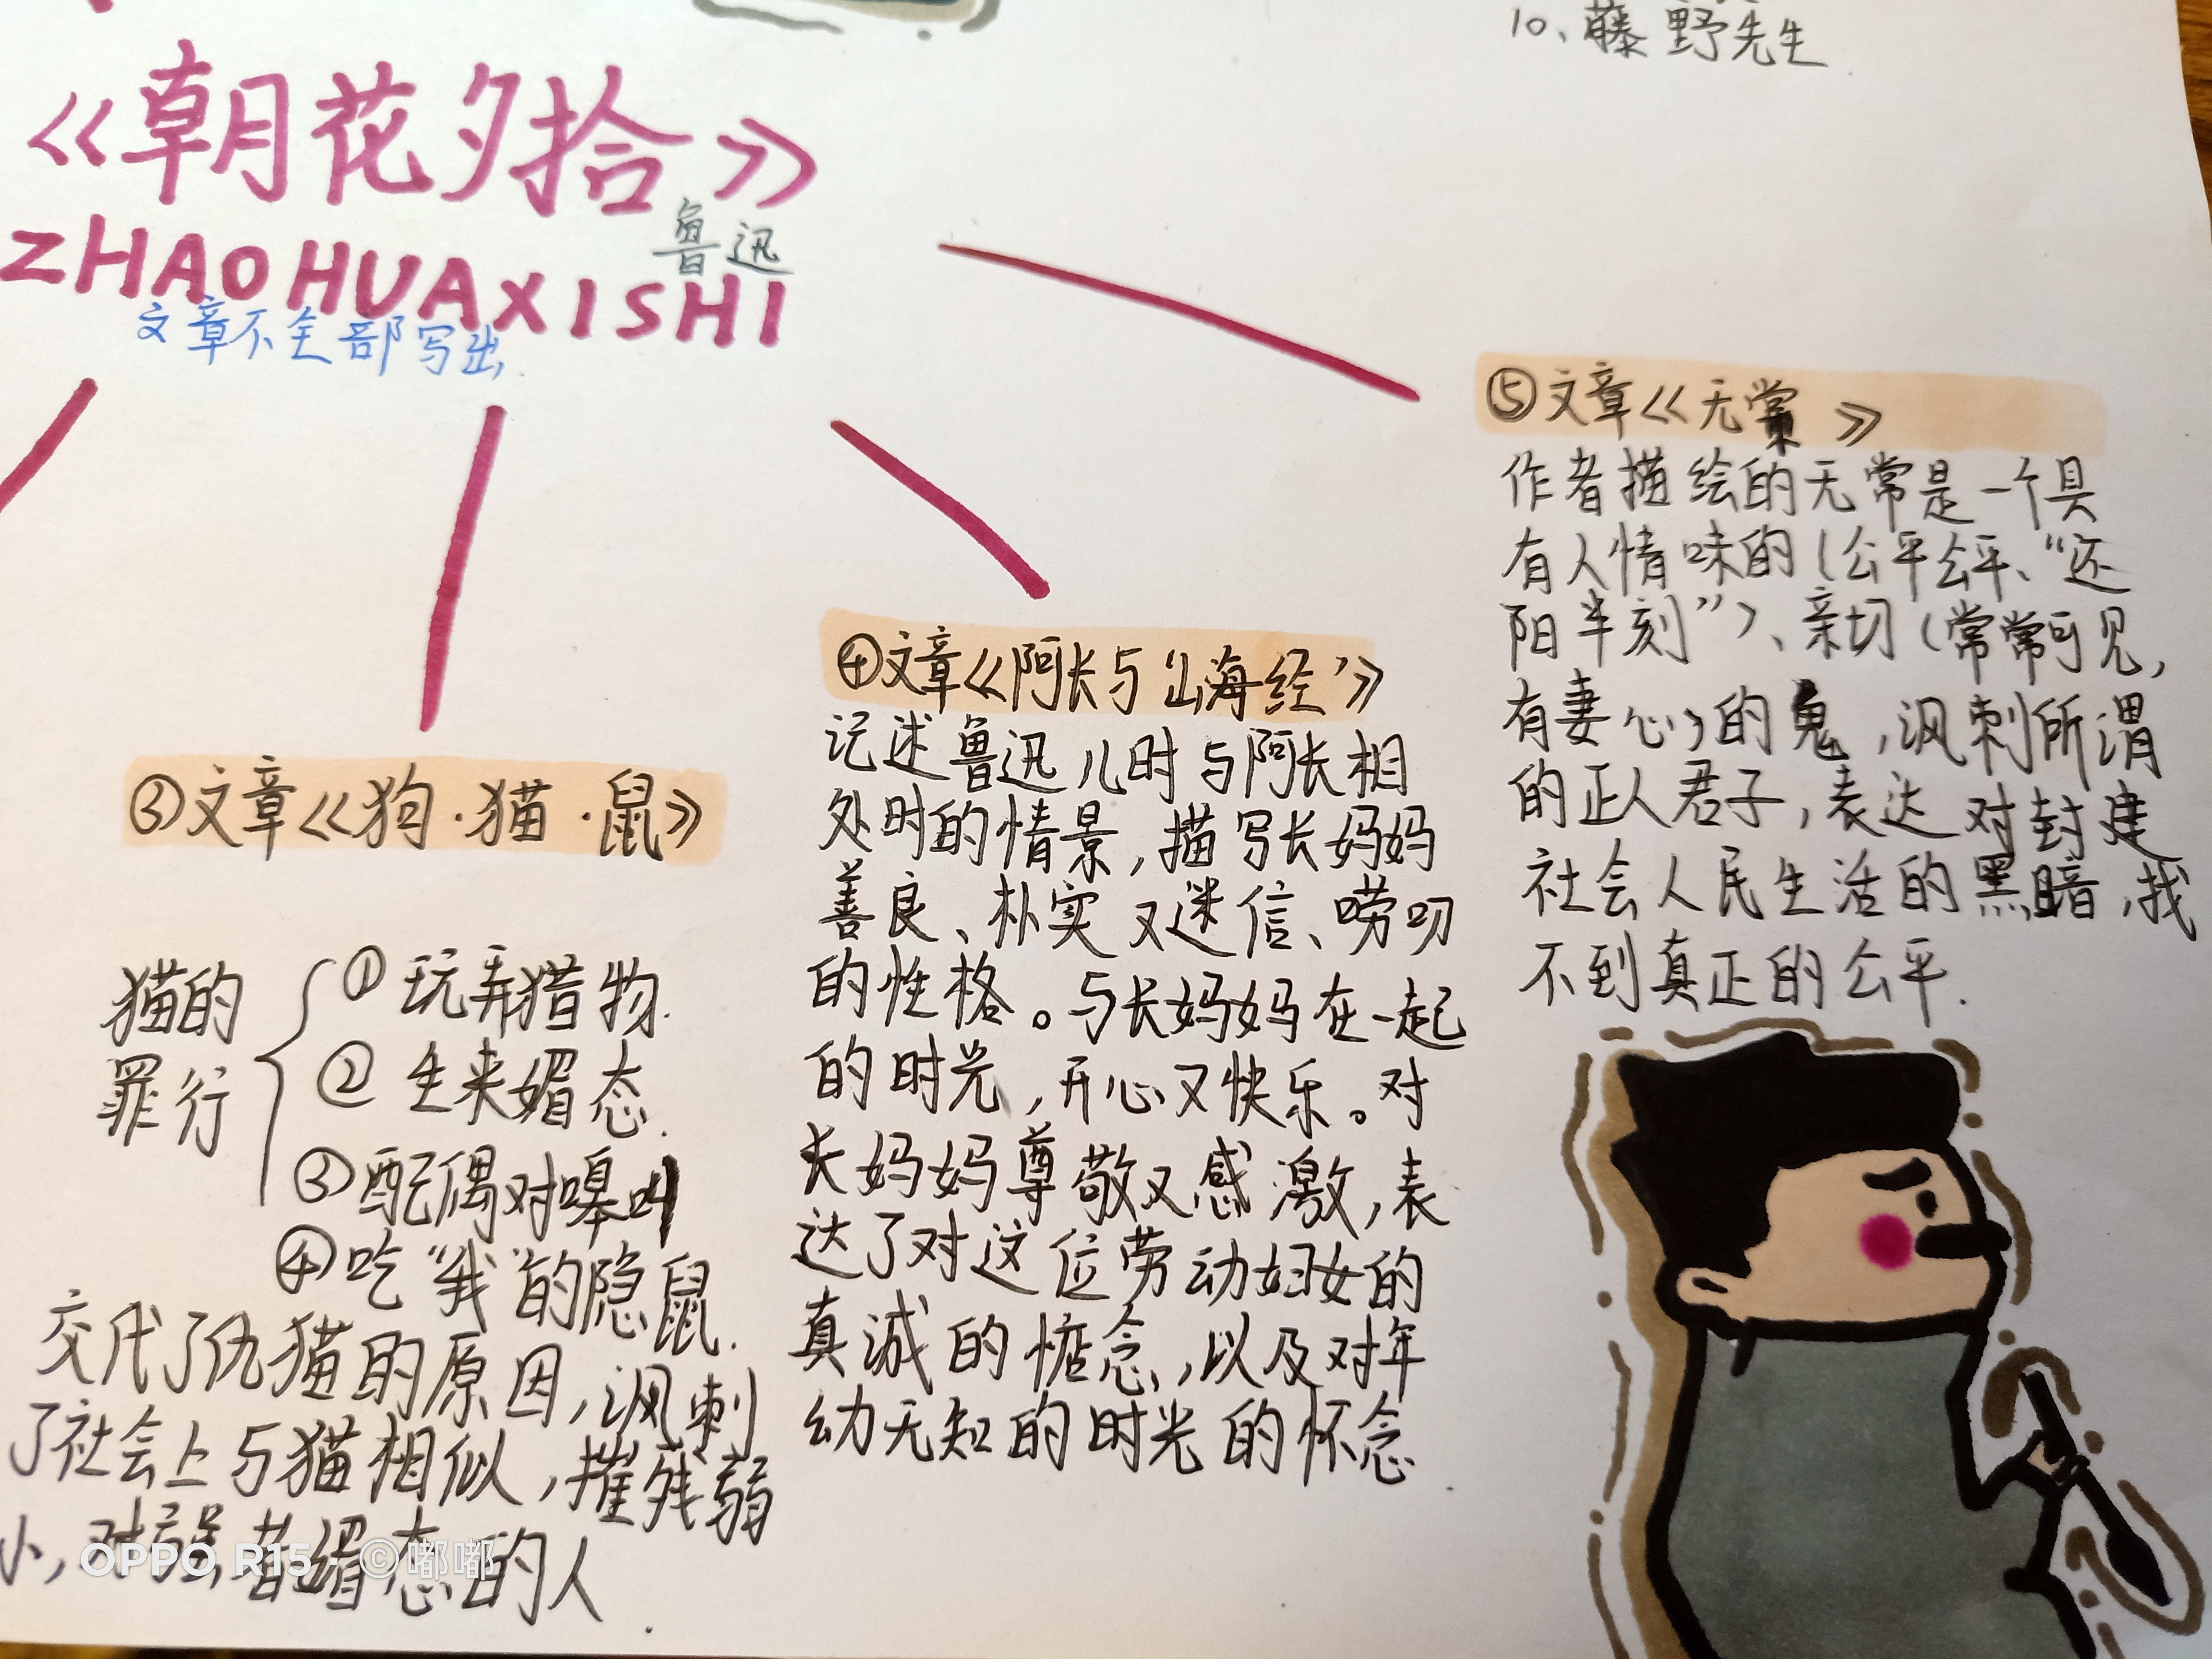 10、藤野先生
《朝花夕拾》
鲁迅
ZHAOHUAXISHI
文章不全部写出.
③文章《狗·猫·鼠》
猫的
罪行
①玩弄猎物.
②生来媚态.
③配偶对嗥叫
④吃“我”的隐鼠.
交代了仇猫的原因,讽刺
了社会上与猫相似,摧残弱
小,对强者媚态的人.
④文章《阿长与‘山海经’》
记述鲁迅儿时与阿长相
处时的情景,描写长妈妈
善良、朴实又迷信、唠叨
的性格。与长妈妈在一起
的时光,开心又快乐。对
长妈妈尊敬又感激,表
达了对这位劳动妇女的
真诚的惦念,以及对年
幼无知的时光的怀念.
⑤文章《无常》
作者描绘的无常是一个具
有人情味的(公平公平、“还
阳半刻”)、亲切(常常可见,
有妻儿)的鬼,讽刺所谓
的正人君子,表达对封建
社会人民生活的黑暗,找
不到真正的公平.
OPPO R15 · ©嘟嘟